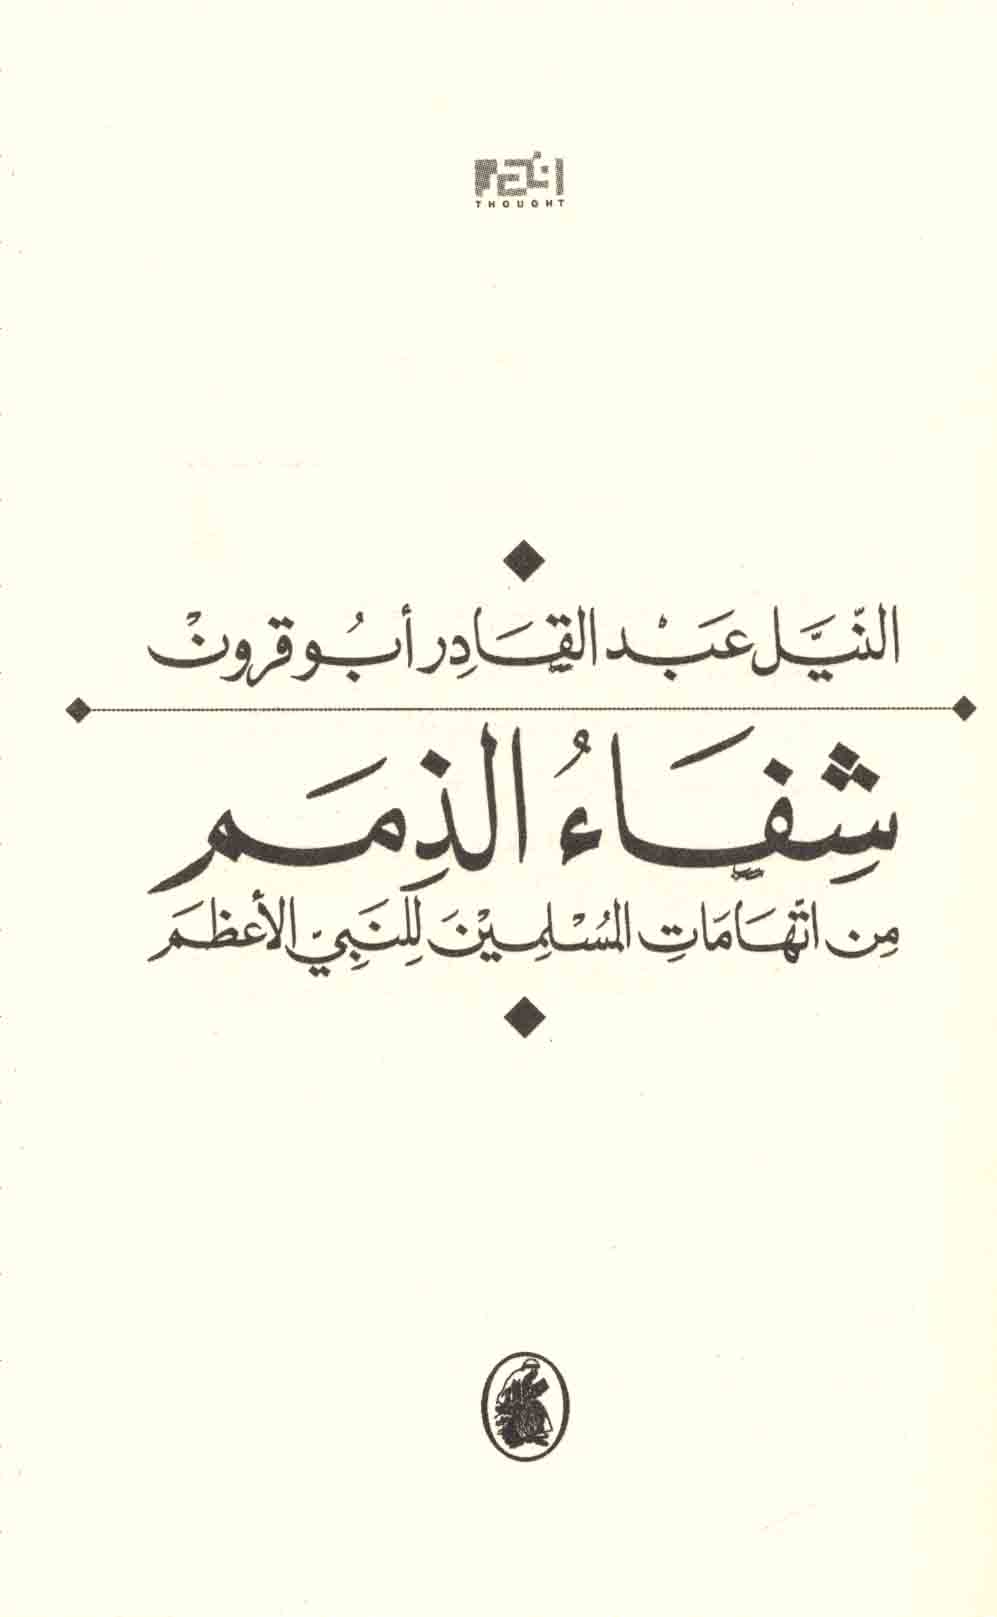 THOUGHT
النّيَّل عَبْد القَادِر أبُو قرونْ
شِفَاءُ الذِمَم
مِن اتّهَامَاتِ المُسْلِمِيْنَ لِلنَبِيّ الأعْظَم